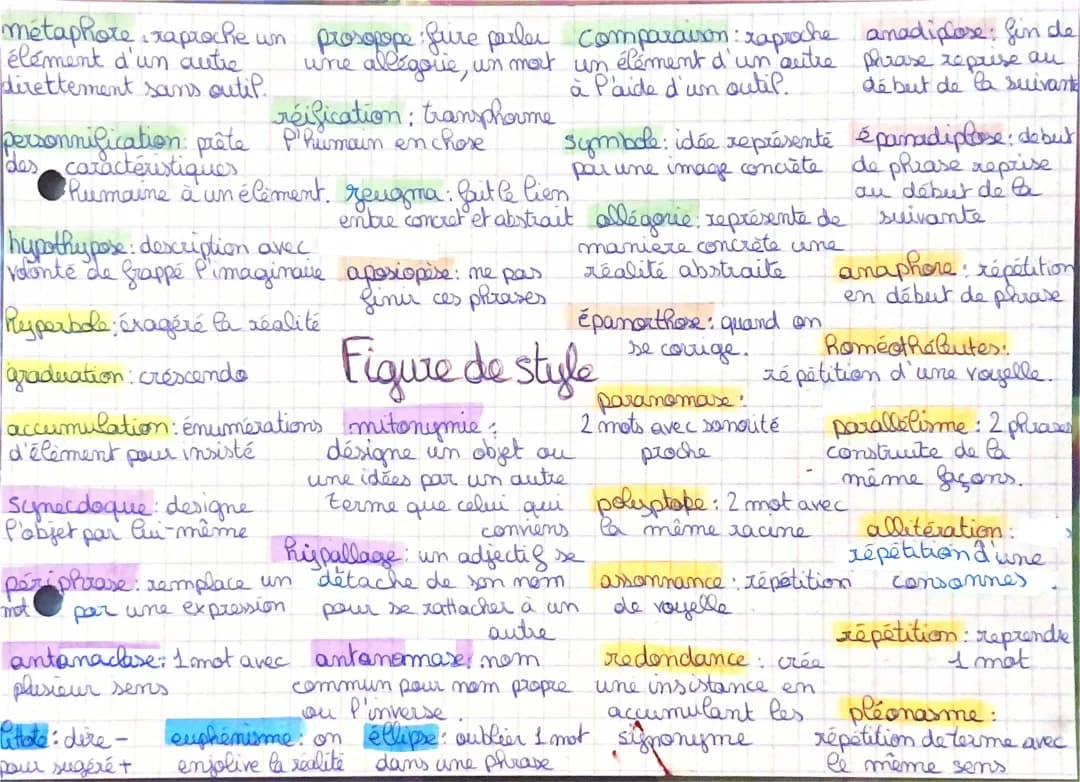 métaphore : raproche un
élément d'un autre
direttement sans outil.
personnification : prête
des caractéristiques
humaine à un élément.
hypothypose : description avec
volonté de frappé l'imaginaire
hyperbole : éxagéré la réalité
graduation : créscendo
accumulation : énumérations
d'élèment pour insisté
synecdoque : designe
l'objet par lui-même
périphrase : remplace un
mot par une expression
antanaclase : 1 mot avec
plusieur sens
litote : dire -
pour sugéré +
prosopope : faire parler
une allégorie, un mort
réification : transphorme
l'humain en chose
zeugma : fait le lien
entre concret et abstrait
aposiopèse : ne pas
finir ces phrases
Figure de style
mitonymie :
désigne un objet ou
une idées par un autre
terme que celui qui
conviens
hipallage : un adjectif se
détache de son nom
pour se rattacher à un
autre
antonomase : nom
commun pour nom propre
ou l'inverse.
euphémisme : on
enjolive la réalité
éllipse : oublier 1 mot
dans une phrase
comparaison : raproche
un élément d'un autre
à l'aide d'un outil.
symbole : idée représenté
par une image concrète
allégorie : représente de
manière concrète une
réalité abstraite
épanorthose : quand on
se corrige.
paranomase :
2 mots avec sonorité
proche
polyptope : 2 mot avec
la même racine
assonnance : répétition
de voyelle
redondance : crée
une insistance en
accumulant les
signonyme
anadiplose : fin de
phrase reprise au
début de la suivant
épanadiplose : debut
de phrase reprise
au début de la
suivante
anaphore : répétition
en début de phrase
homéothéleutes :
répétition d'une voyelle.
parallélisme : 2 phrases
construite de la
même façons.
allitération :
répétition d'une
consonnes.
répétition : reprendre
1 mot
pléonasme :
répétition de terme avec
le même sens